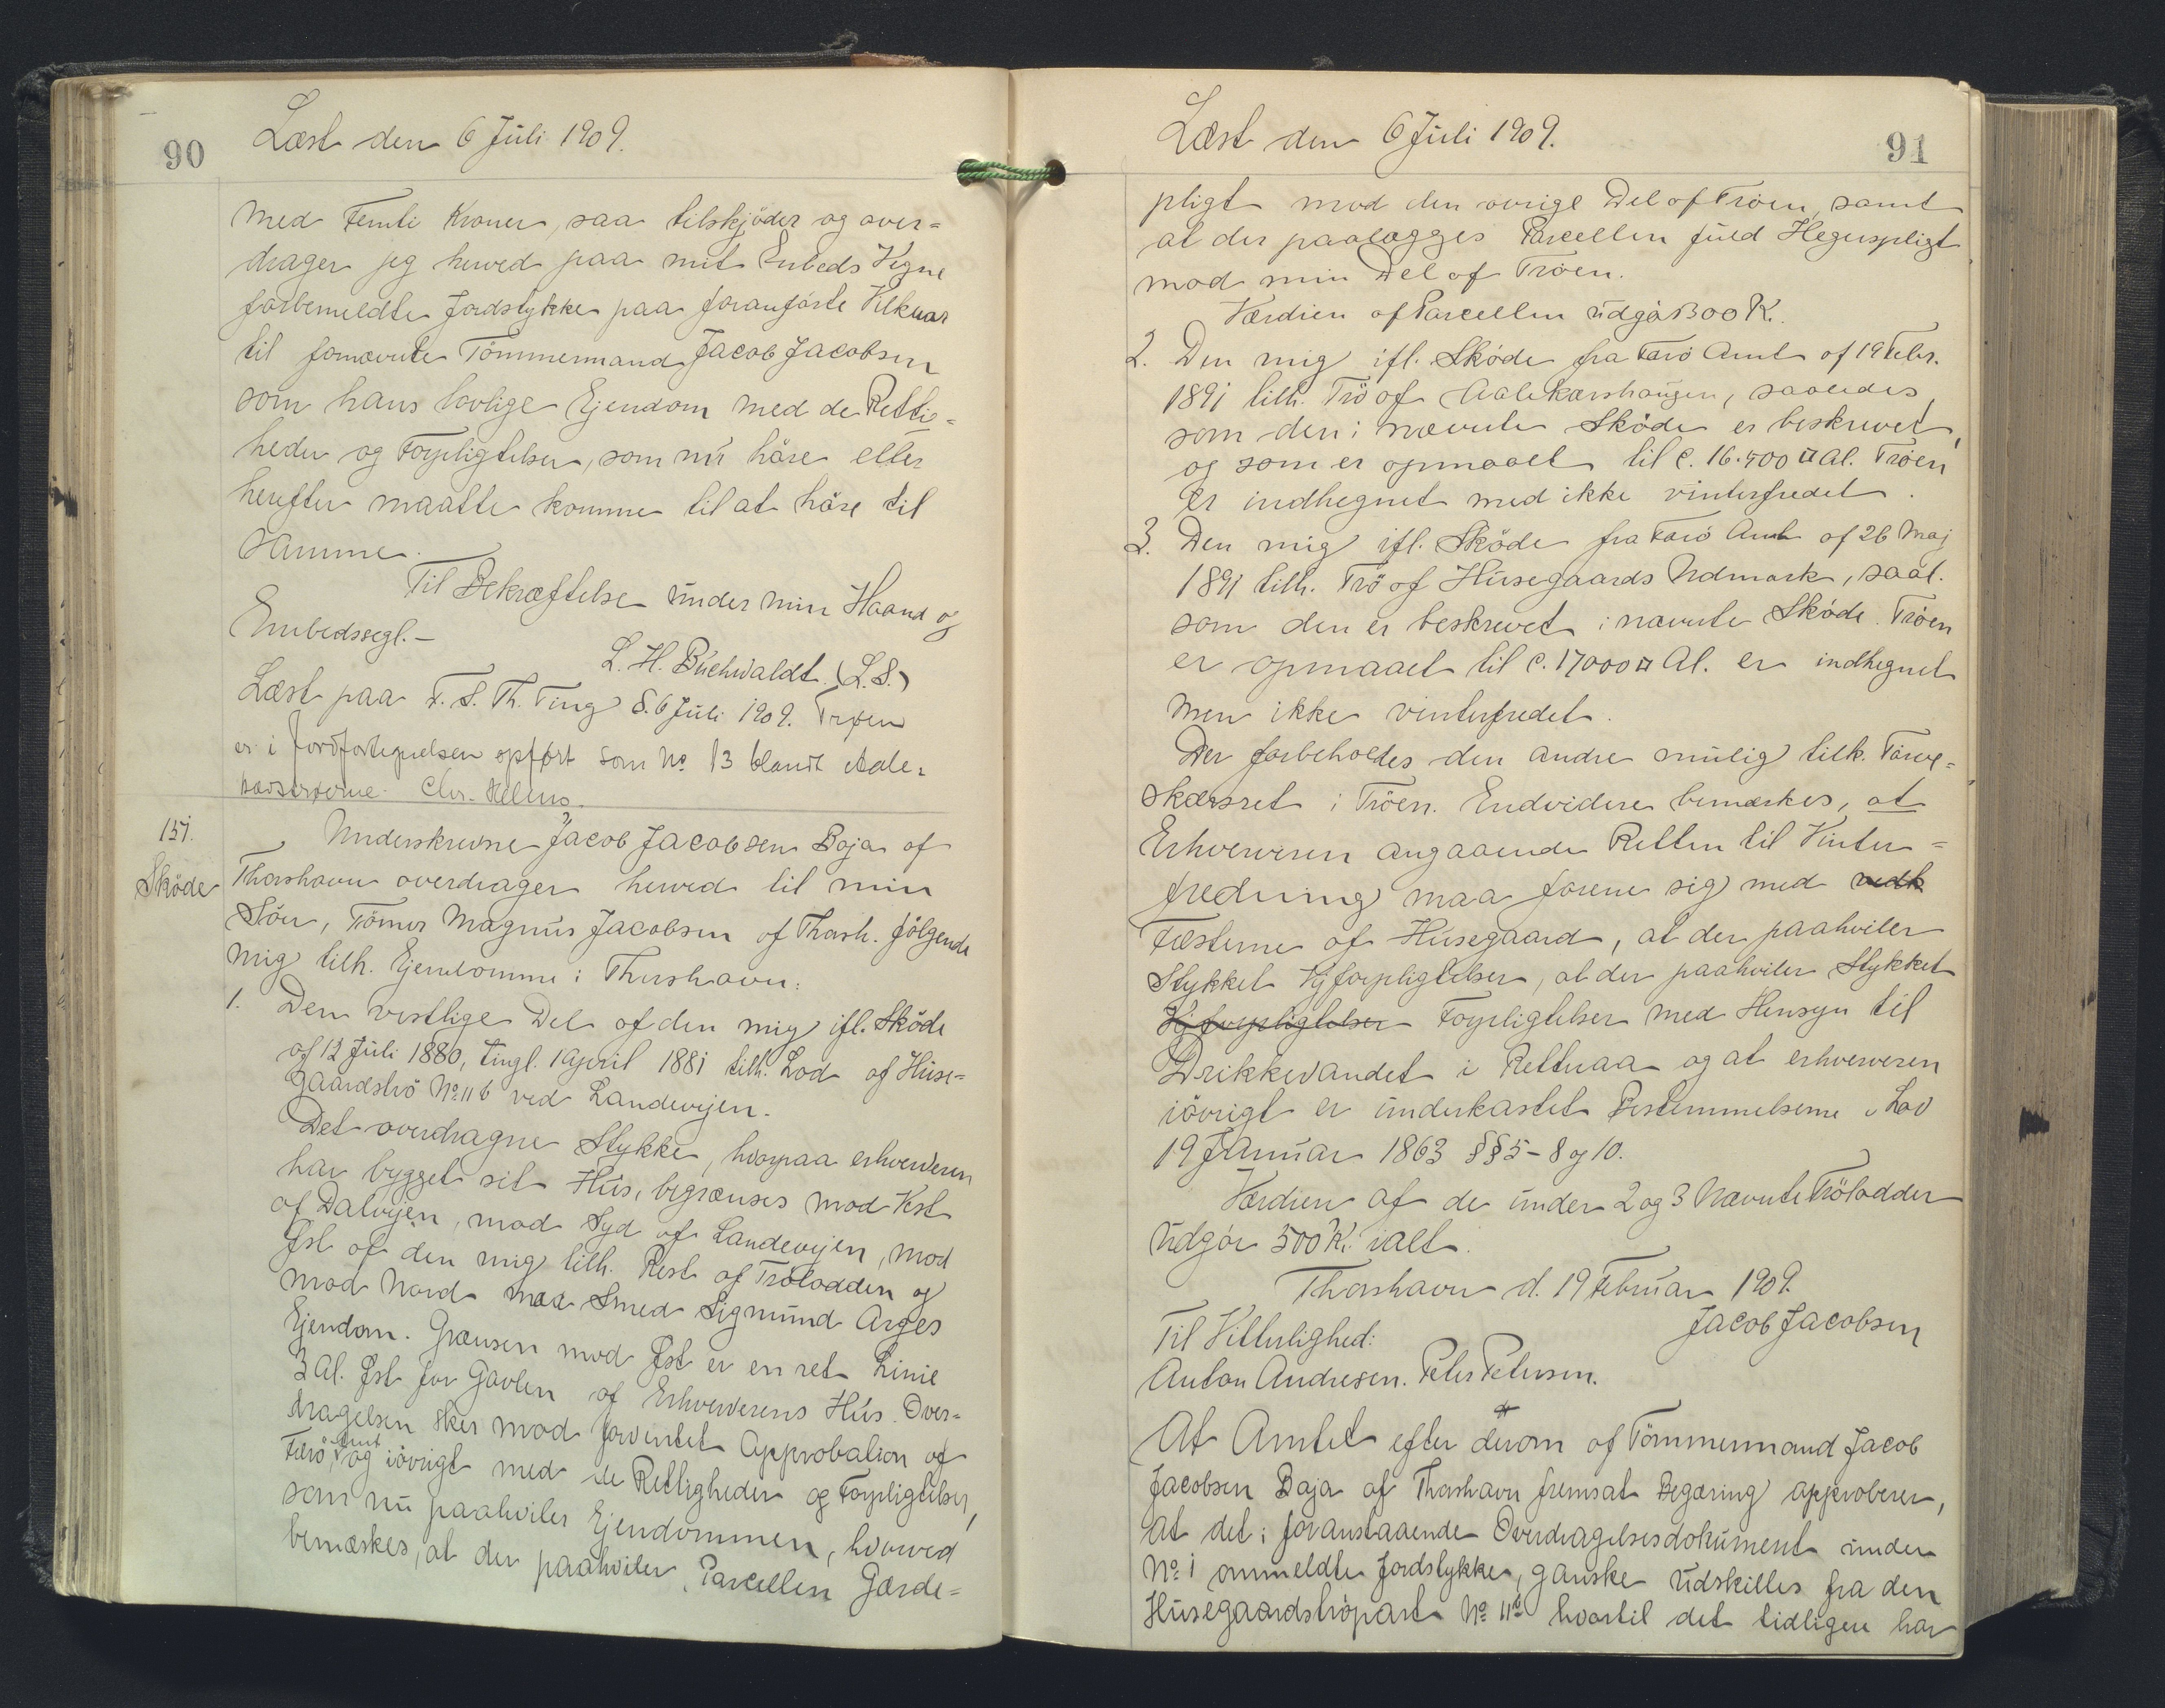 90
Læst den 6 Juli 1909.
med Femti Kroner, saa tilskjöder og over=
drager jeg herved paa mit Embeds Vegne
forbemeldte Jordstykke paa foranförte Vilkaar
til fornævnte Tömmermand Jacob Jacobsen
som hans lovlige Ejendom med de Rettig=
heder og Forpligtelser, som nu höre eller
herefter maatte komme til at höre til
samme.
Til Bekræftelse under min Haand og
Embedssegl.-
L. H. Buchwaldt. (L.S.)
Læst paa F. S. Th. Ting d. 6 Juli 1909. Trøen
er i Jordfortegnelsen opført som No 13 blandt Aale=
kærstrøerne. Chr.
151.
Sköde
Underskrevne Jacob Jacobsen Boja af
Thorshavn overdrager herved til min
Sön, Tömrer Magnus Jacobsen af Thorsh. fölgende
mig tilh. Ejendomme i Thorshavn:
1. Den vestlige Del af den mig ifl. Sköde
af 12 Juli 1880, tingl. 1 April 1881 tilh. Lod af Huse=
gaardströ No 11 b ved Landevejen.
Det overdragne Stykke, hvorpaa erhververen
har bygget sit Hus, begrænses mod Vest
af Dalvejen, mod Syd af Landevejen, mod
Øst af den mig tilh. Rest af Trölodden og
mod Nord med Smed Sigmund Arges
Ejendom. Grænsen mod Øst er en ret Linie
3 Al. Øst for Gavlen af Erhververens Hus. Over=
dragelsen sker mod forventet Approbation af
Færö Amt og iövrigt med de Rettigheder og Forpligtelser,
som nu paahviler Ejendommen, hvorved
bemærkes, at der paahviler Parcellen Gærde=
Læst den 6 Juli 1909.
91
pligt mod den övrige Del af Tröen, samt
at der paalægges Parcellen fuld Hegnspligt
mod min Del af Tröen.
Værdien af Parcellen udgör 300 K.
2. Den mig ifl. Sköde fra Færö Amt af 19 Febr.
1891 tilh. Trö af Aalekærshaugen, saaledes
som den i nævnte Sköde er beskrevet,
og som er opmaalt til c. 16.500 □ Al. Tröen
er indhegnet med ikke vinterfredet.
3. Den mig ifl. Sköde fra Færö Amt af 26 Maj
1891 tilh. Trö af Husegaards Udmark, saal.
som den er beskrevet i nævnte Sköde. Tröen
er opmaalt til c. 17000 □ Al. er indhegnet
men ikke vinterfredet.
Der forbeholdes den andre mulig tilk. Törve=
skærsret i Tröen. Endvidere bemærkes, at
Erhververen angaaende Retten til Vinter=
fredning maa forene sig med vedk
Fæsterne af Husegaard, at der paahviler
Stykket Vejforpligtelser, at der paahviler Stykket
Vejforpligtelser Forpligtelser med Hensyn til
Drikkevandet i Rettraa og at erhververen
iövrigt er underkastet Bestemmelserne i Lov
19 Januar 1863 §§ 5 - 8 og 10.
Værdien af de under 2 og 3 nævnte Trölodder
udgör 500 Kr. ialt.
Thorshavn d. 19 Februar 1909.
Jacob Jacobsen
Til Vitterlighed:
Anton Andresen. Peter Petersen.
At Amtet efter derom af Tömmermand Jacob
Jacobsen Boja af Thorshavn fremsat Begæring approberer,
at det i foranstaaende Overdragelsesdokument under
No 1 ommeldte Jordstykke, ganske udskilles fra den
Husegaardströpart No 11 b hvortil det tidligere har